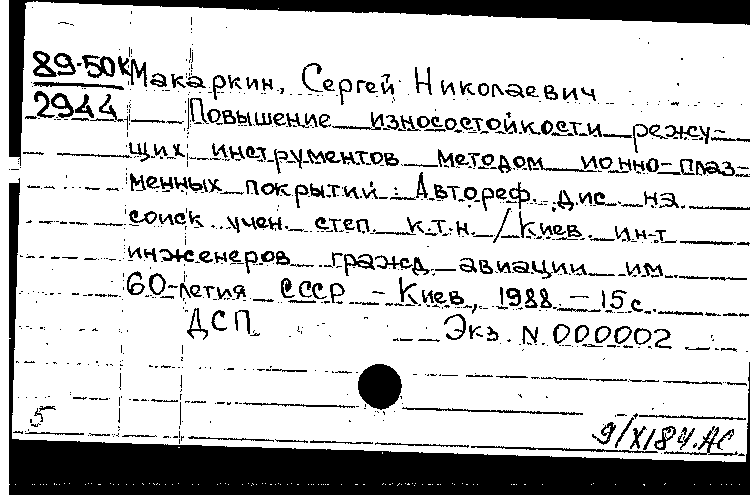 89-50К Макаркин, Сергей Николаевич
2944 Повышение износостойкости режу-
щих инструментов методом ионно-плаз-
менных покрытий : Автореф. дис. на
соиск. учен. степ. к.т.н. / Киев. ин-т
инженеров гражд. авиации им.
60-летия СССР - Киев, 1988. - 15 с.
ДСП Экз. N 000002
5